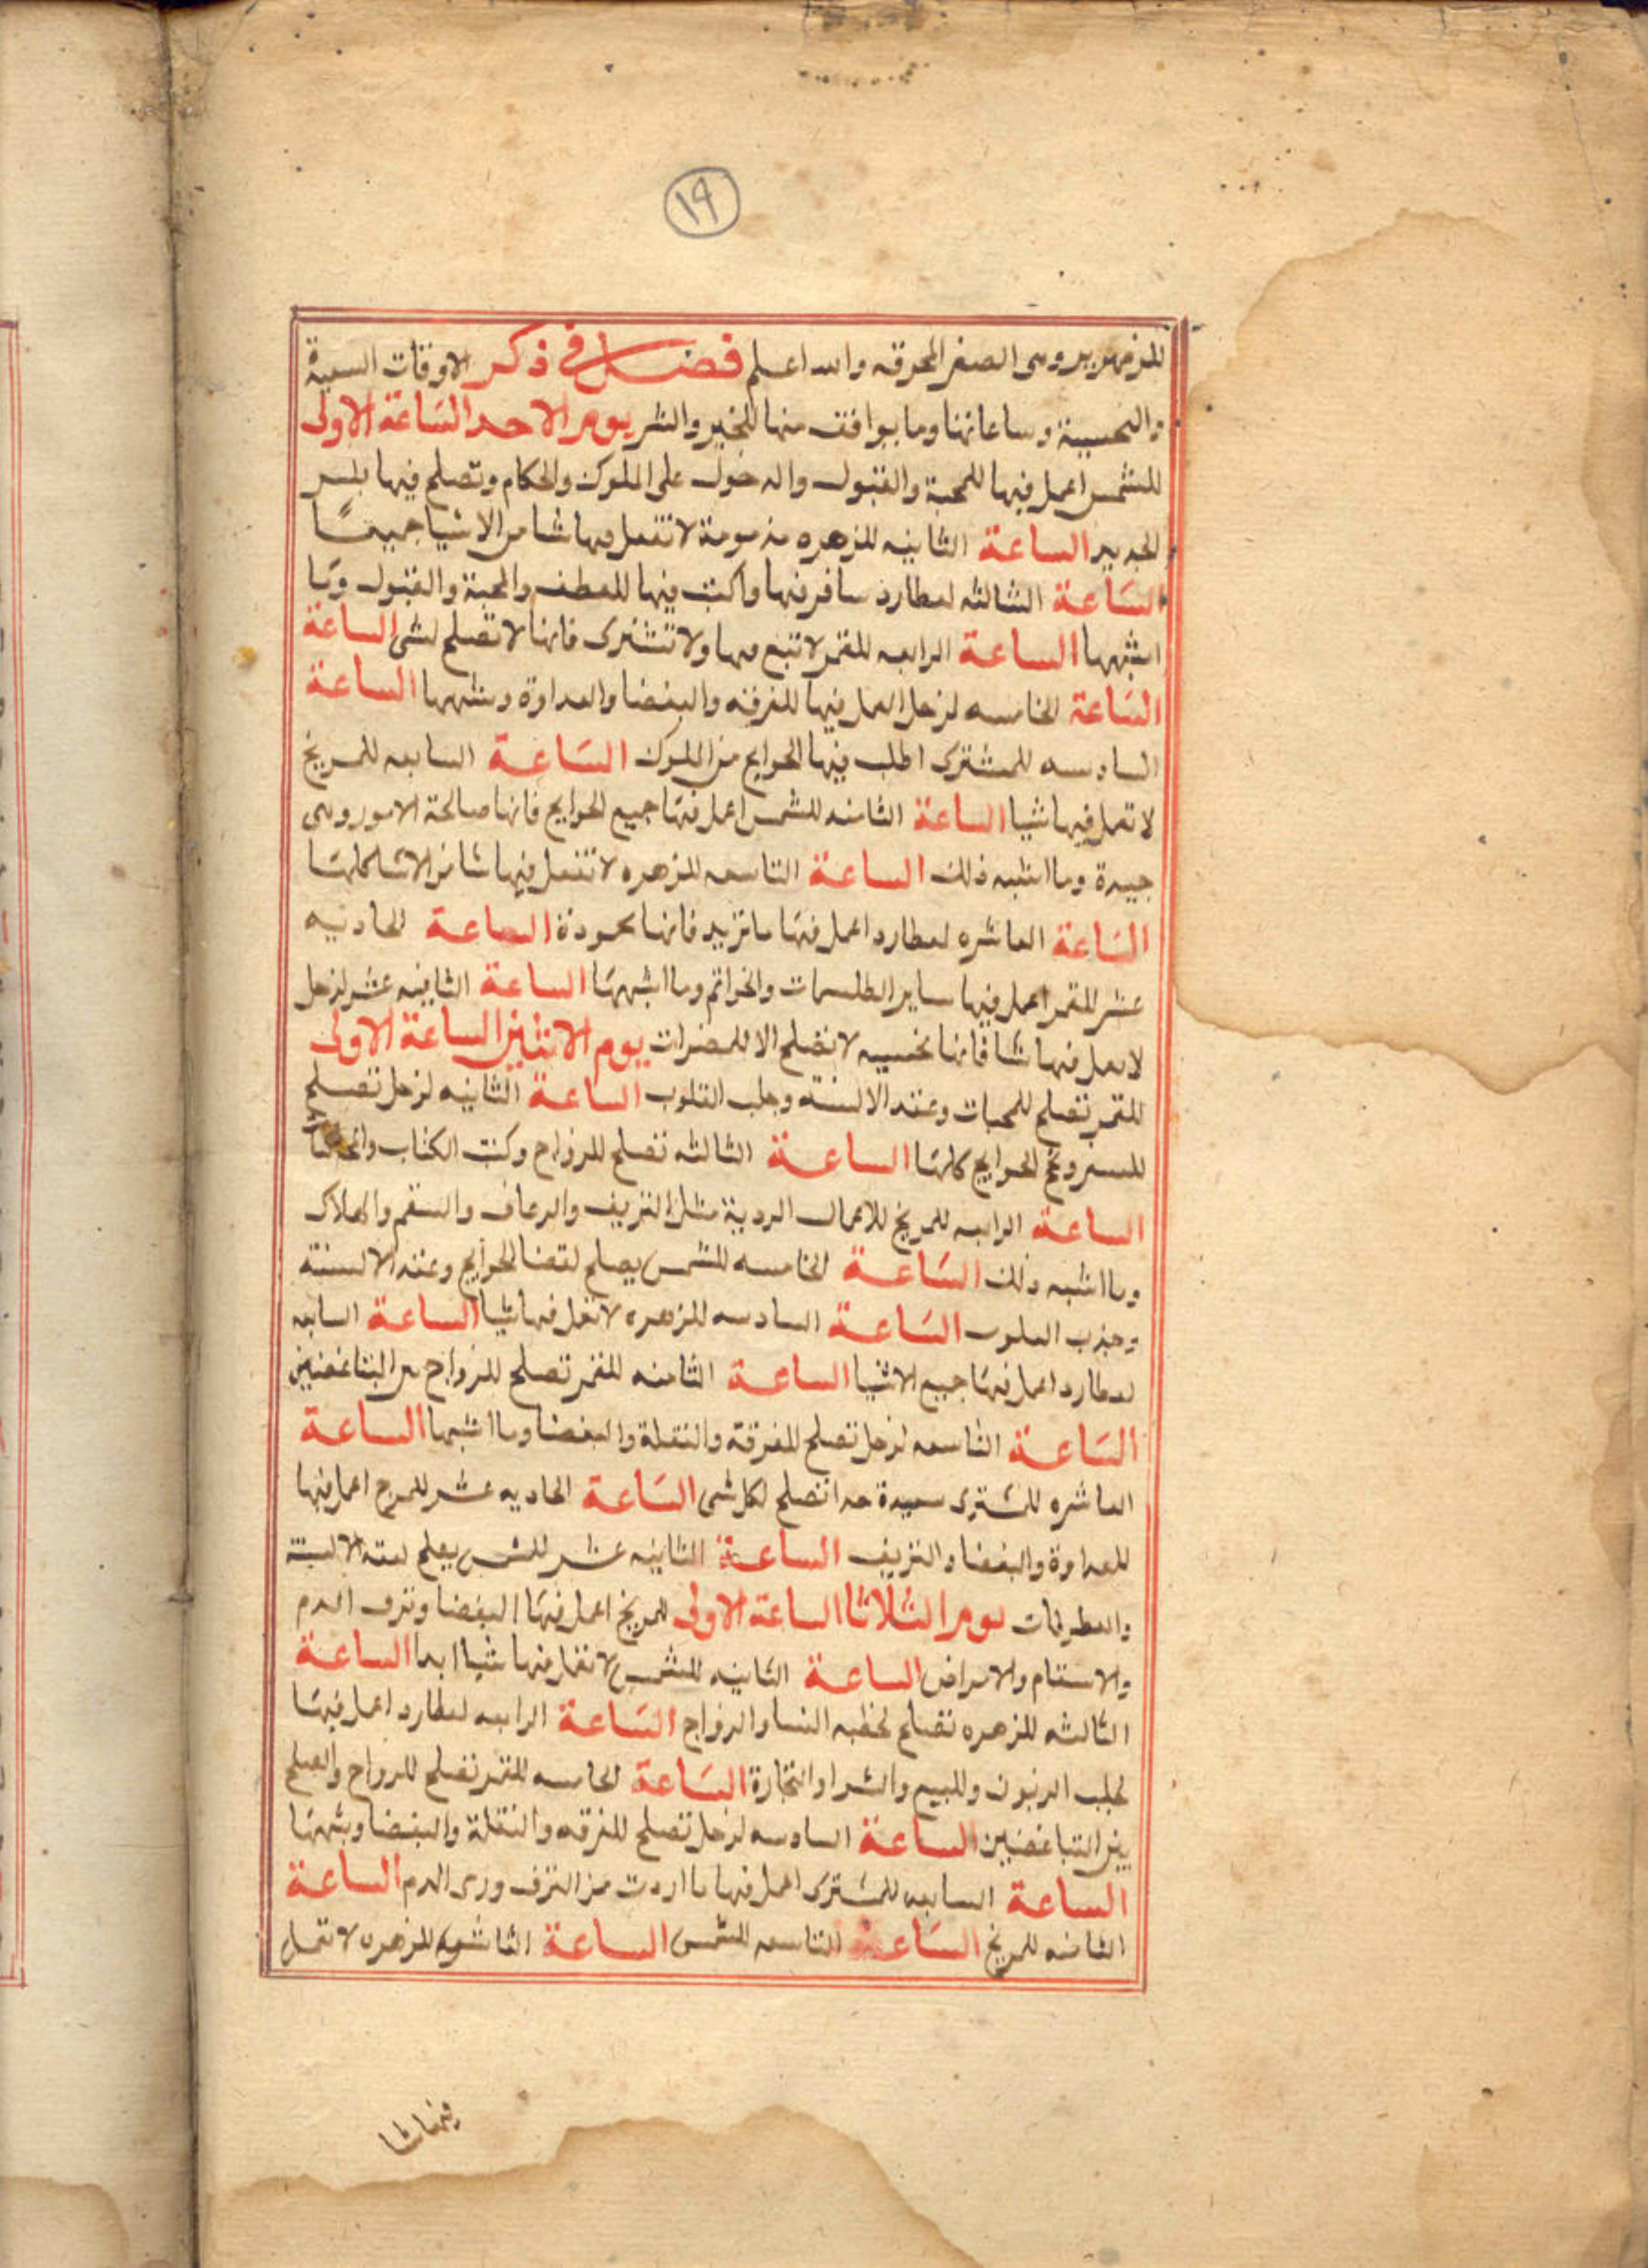 ١٩
للزمهرير وهى الصفر المحرقه والله اعلم فصل فى ذكر الاوقات السعيدة
والنحسية وساعاتها وما يوافق منها للخير والشر يوم الاحد الساعة الاولى
للشمس اعمل فيها للمحبة والقبول والدخول على الملوك والحكام وتصلح فيها لبس
الجديد الساعة الثانيه للزهره مذمومة لا تفعل فيها شيا من الاشيا جميعًا
الساعة الثالثه لعطارد سافر فيها واكتب فيها للعطف والمحبة والقبول وما
اشبهها الساعة الرابعه للقمر لا تبع فيها ولا تشترى فانها لا تصلح لشى الساعة
الساعة الخامسه لزحل اعمل فيها للفرقه والبغضا والعداوة وشبهها الساعة
السادسه للمشترى اطلب فيها الحوايج من الملوك الساعة السابعه للمريخ
لا تعمل فيها شيا الساعة الثامنه للشمس اعمل فيها جميع الحوايج فانها صالحة الامور وهى
جيدة وما اشبه ذلك الساعة التاسعه للزهره لا تفعل فيها شيا من الاشيا كلها
الساعة العاشره لعطارد اعمل فيها ما تريد فانها محمودة الساعة الحاديه
عشر للقمر اعمل فيها ساير الطلسمات والخواتم وما اشبهها الساعة الثانيه عشر لزحل
لا تعمل فيها شيا فانها نحسيه لا تصلح الا للمضرات يوم الاثنين الساعة الاولى
للقمر تصلح للمحبات وعقد الالسنه وجلب القلوب الساعة الثانيه لزحل تصلح
للسفر الحوايج كلها الساعة الثالثه تصلح للزواج وكتب الكتاب
الساعة الرابعه للمريخ للاعمال الردية مثل النزيف والرعاف والسقم والهلاك
وما اشبه ذلك الساعة الخامسه للشمس يصلح لقضا الحوايج وعقد الالسنة
وجذب القلوب الساعة السادسه للزهره لا تعمل فيها شيا الساعة السابعه
لعطارد اعمل فيها جميع الاشيا الساعة الثامنه للقمر تصلح للزواج بين المتباغضين
الساعة التاسعه لزحل تصلح للفرقة والنقلة والبغضا وما اشبهها الساعة
العاشره للمشترى سعيدة جدا تصلح لكل شى الساعة الحاديه عشر للمريخ اعمل فيها
للعداوة والبغضا والنزيف الساعة الثانيه عشر للشمس يصلح لعقد الالسنة
والعطوفات يوم الثلاثا الساعة الاولى للمريخ اعمل فيها البغضا ونزف الدم
والاسقام والامراض الساعة الثانيه للشمس لا تعمل فيها شيا ابدا الساعة
الثالثه للزهره تصلح لخطبه النسا والزواج الساعة الرابعه لعطارد اعمل فيها
لجلب الزبون وللبيع والشرا والتجارة الساعة الخامسه للقمر تصلح للزواج والصلح
بين المتباغضين الساعة السادسه لزحل تصلح للفرقه والنقلة والبغضا وشبهها
الساعة السابعه للمشترى اعمل فيها ما اردت من النزف ورمى الدم الساعة
الثامنه للمريخ الساعة التاسعه للشمس الساعة العاشره للزهره لا تعمل
فيها شيا